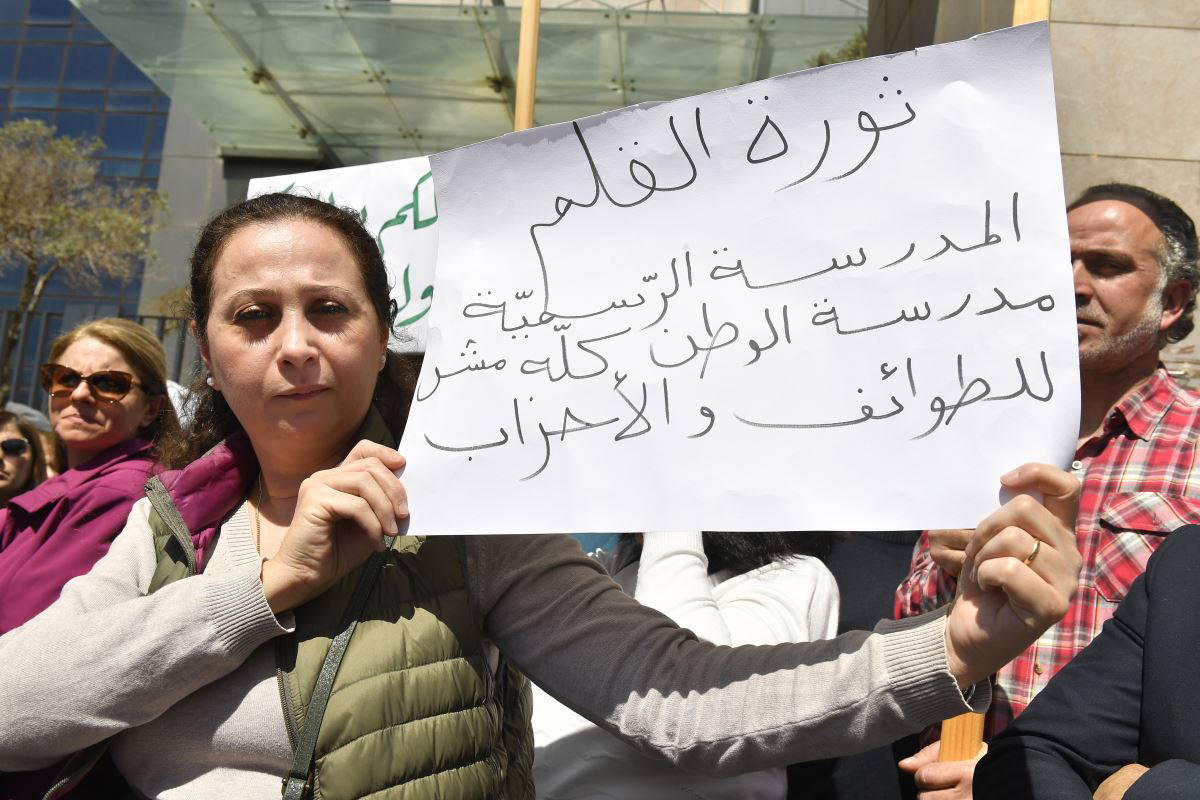 ثورة القلم
المدرسة الرّسميّة
مدرسة الوطن كلّه مش
للطوائف والأحزاب